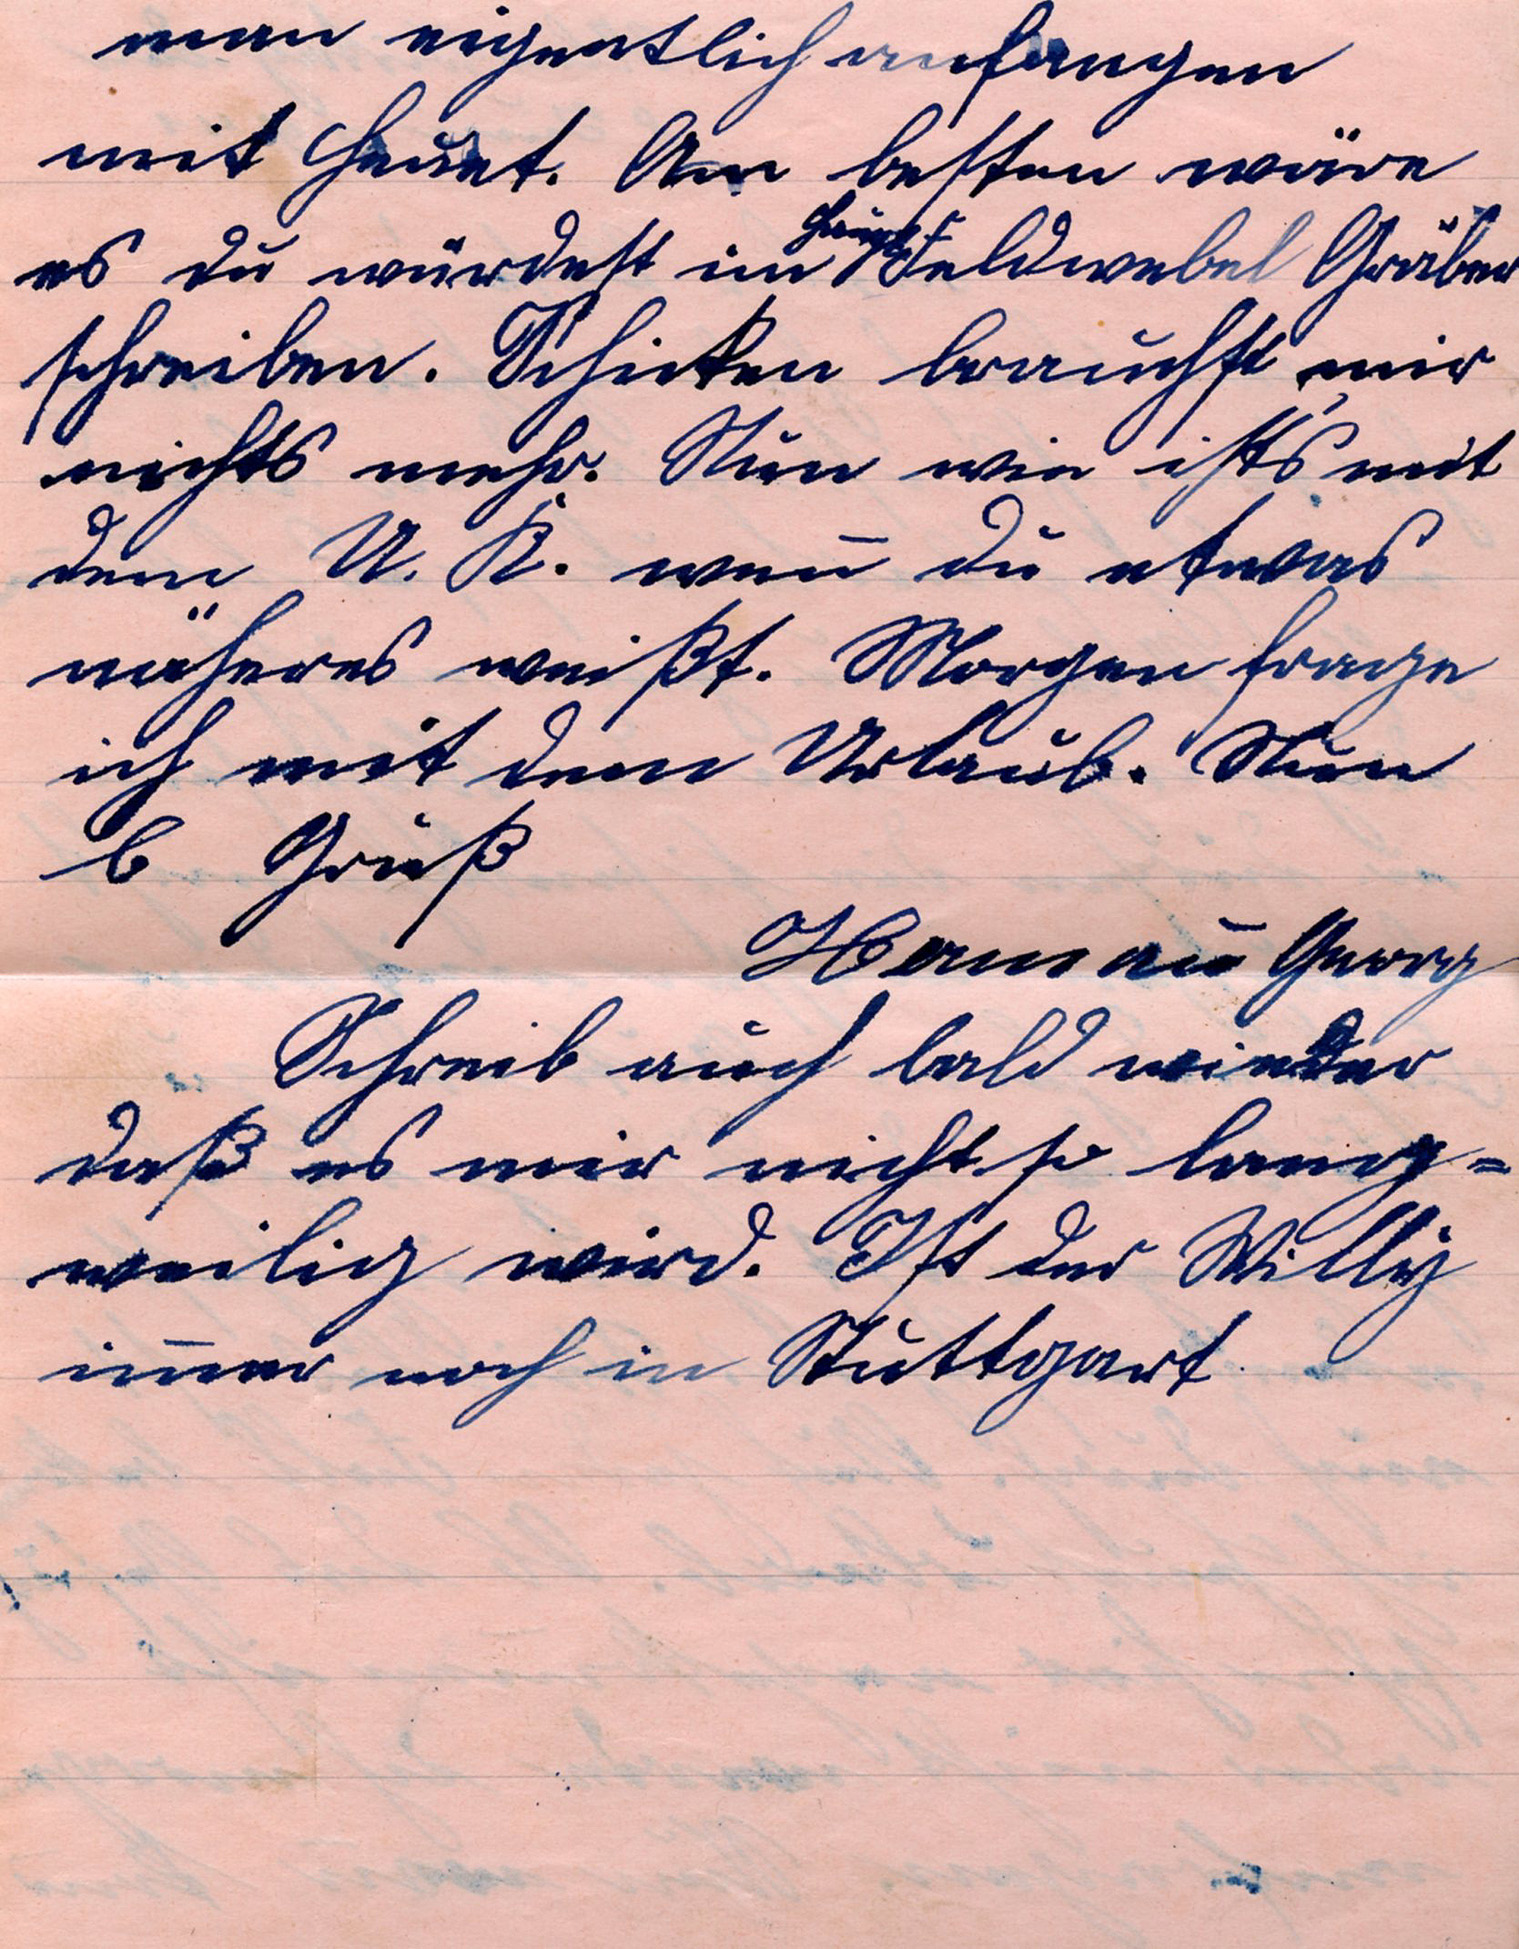 man eigentlich anfangen
mit Heuet. Am besten wäre
es du würdest im Haupt-Feldwebel Gräber
schreiben. Schicken brauchst mir
nichts mehr. Nun wie ists mit
dem U. K. weñ du etwas
näheres weißt. Morgen frage
ich mit dem Urlaub. Nun
b Gruß
Georg
Schreib auch bald wieder
daß es mir nicht so lang=
weilig wird. Ist der Willy
im̄er noch in Stuttgart